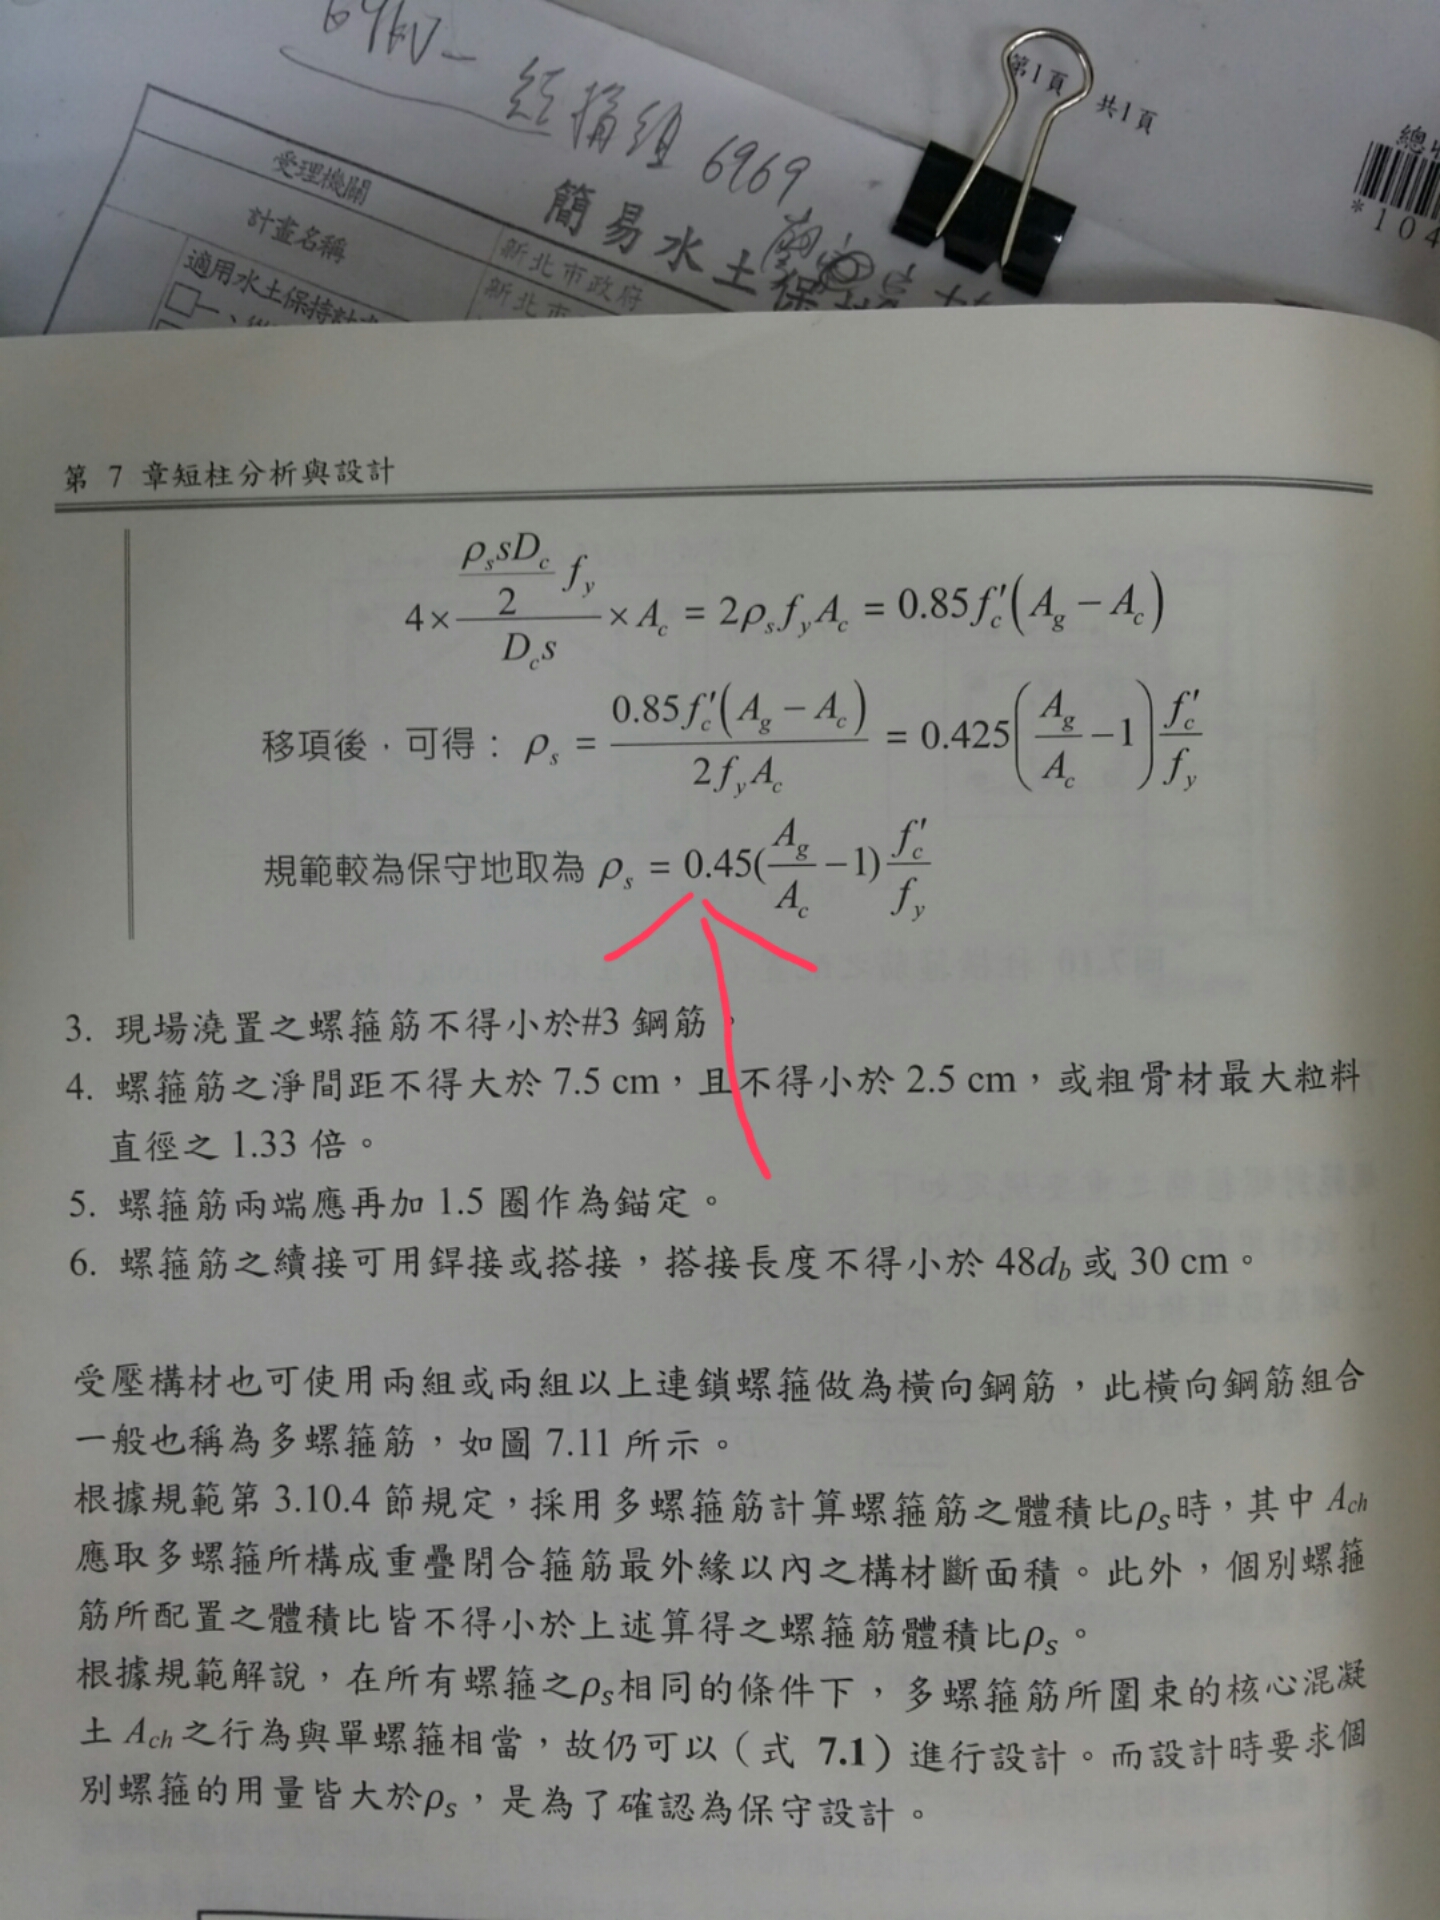 第1頁 共1頁
總收
*104
經補組 6969
受理機關
簡易水土保
計畫名稱
新北市政府
適用水土保持計
新北市
第 7 章短柱分析與設計
4×((ρ_s s D_c / 2) f_y)/(D_c s) × A_c = 2ρ_s f_y A_c = 0.85f'_c(A_g − A_c)
移項後,可得: ρ_s = 0.85f'_c(A_g − A_c) / 2f_y A_c = 0.425(A_g/A_c − 1) f'_c/f_y
規範較為保守地取為 ρ_s = 0.45(A_g/A_c − 1) f'_c/f_y
3. 現場澆置之螺箍筋不得小於#3 鋼筋。
4. 螺箍筋之淨間距不得大於 7.5 cm,且不得小於 2.5 cm,或粗骨材最大粒料
直徑之 1.33 倍。
5. 螺箍筋兩端應再加 1.5 圈作為錨定。
6. 螺箍筋之續接可用銲接或搭接,搭接長度不得小於 48d_b 或 30 cm。
受壓構材也可使用兩組或兩組以上連鎖螺箍做為橫向鋼筋,此橫向鋼筋組合
一般也稱為多螺箍筋,如圖 7.11 所示。
根據規範第 3.10.4 節規定,採用多螺箍筋計算螺箍筋之體積比ρ_s時,其中 A_ch
應取多螺箍所構成重疊閉合箍筋最外緣以內之構材斷面積。此外,個別螺箍
筋所配置之體積比皆不得小於上述算得之螺箍筋體積比ρ_s。
根據規範解說,在所有螺箍之ρ_s相同的條件下,多螺箍筋所圍束的核心混凝
土 A_ch之行為與單螺箍相當,故仍可以(式 7.1)進行設計。而設計時要求個
別螺箍的用量皆大於ρ_s,是為了確認為保守設計。